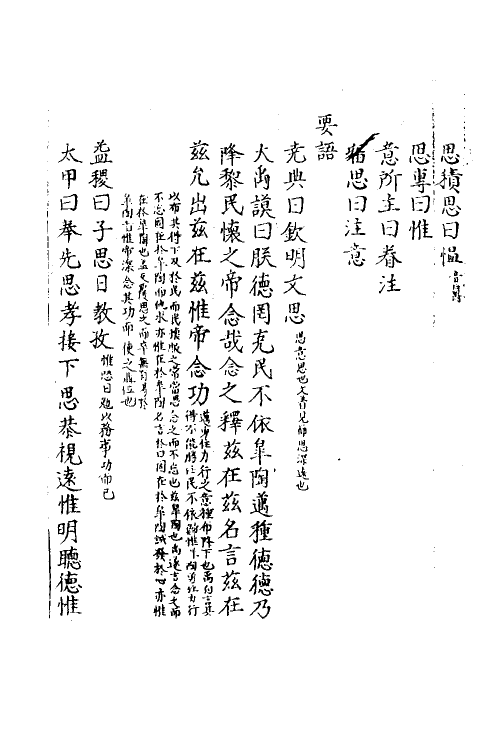 思積思曰慍音縕
思專曰惟
意所主曰眷注
思曰注意
要語
堯典曰欽明文思思意思也文著見師思深遠也
大禹謨曰朕德罔克民不依臯陶邁種德德乃
降黎民懷之帝念哉念之釋兹在兹名言兹在
兹允出兹在兹惟帝念功邁勇往力行之意種布降下也禹自言其
得不能勝任民不依歸惟臯陶勇往力行
以布其德下及於民而民懷服之帝當思念之而不忘也兹臯陶也禹遂言念之而
不忘固在於臯陶而他求亦惟在於臯陶名言於口固在於臯陶誠發於心亦惟
在於臯陶也蓋反覆思之而卒無有易於
臯陶言惟帝深念其功而使之攝位也
益稷曰予思日孜孜惟思日勉以務事功而已
太甲曰奉先思孝接下思恭視遠惟明聽德惟